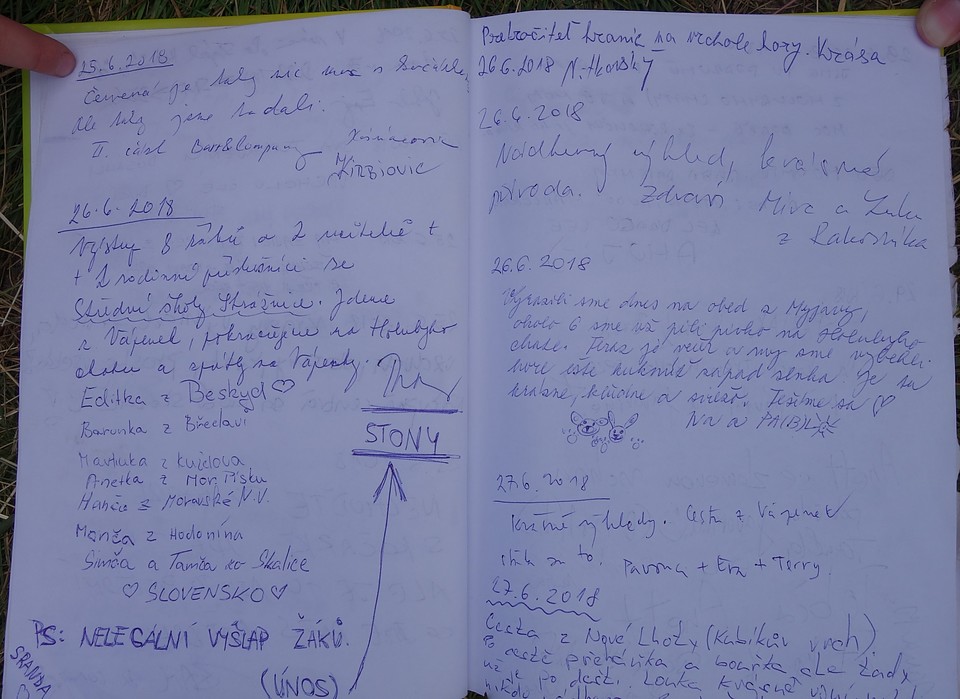 25.6.2018
Červená je tady víc
ale taky jsme to dali.
II. část
Kirbiovic
26.6.2018
Výstup 8 žáků a 2 učitelé +
+ 2 rodinní příslušníci ze
Střední školy Strážnice. Jdeme
z Vápenek, pokračujeme na Holubyho
chatu a zpátky na Vápenky.
Editka z Beskyd ♡
Barunka z Břeclavi
STONY
Martinka z Kuželova
Anetka z Mor. Písku
Hanča z Moravské N.V.
Monča z Hodonína
Simča a Tamča zo Skalice
♡ SLOVENSKO ♡
PS: NELEGÁLNÍ VÝŠLAP ŽÁKŮ.
(ÚNOS)
SRANDA
Prekročiteľ hraníc na vrchole hory. Krása
26.6.2018
26.6.2018
Nádherný výhled, krásná
příroda. Zdraví Mira a
z Rakovníka
26.6.2018
Vyrazili sme dnes na obed z Myjavy,
okolo 6 sme už pili pivko na Holubyho
chate. Teraz je večer a my sme vybehli
hore ešte kuknúť západ slnka. Je tu
krásne, kľudne a sviežo. Tešíme sa ♡
27.6.2018
Krásné výhledy. Cesta z Vápenek
stála za to. + Eva + Terry.
27.6.2018
Cesta z Nové Lhoty (Kubíkův vrch).
Po cestě přeháňka a bouřka ale tady
už je po dešti. Louka krásně